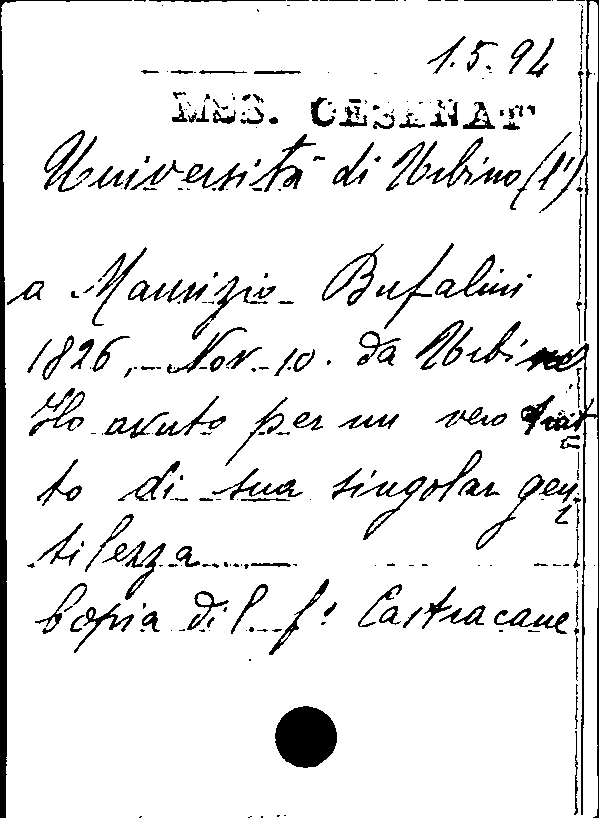 1.5.94
MSS. CESENAT
Università di Urbino (l')
a Maurizio Bufalini
1826, Nov. 10. da Urbino
Ho avuto per un vero trat
to di sua singolar gen
tilezza
Copia di l. f° Castracane